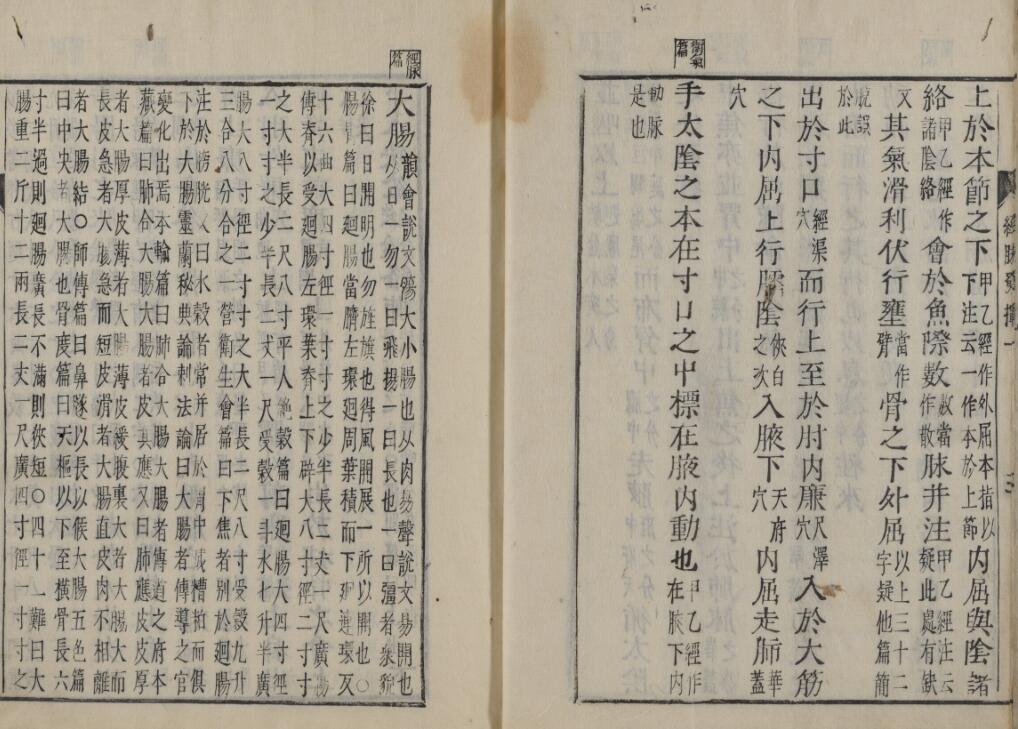 上於本節之下甲乙經作外屈本指以下注云一作本於上節內屈與陰諸
絡甲乙經作諸陰絡會於魚際數數當作散脉并注甲乙經注云疑此處有缺
文其氣滑利伏行壅當作臂骨之下外屈以上三十二字疑他篇簡
脫誤於此
出於寸口經渠穴而行上至於肘內廉尺澤穴入於大筋
之下內屈上行臑陰俠白之次入腋下天府穴內屈走肺華蓋
穴
衛氣篇
手太陰之本在寸口之中標在腋內動也甲乙經作在腋下內
動脉是也
經脉發揮一
經脉篇
大腸韻會說文腸大小腸也从肉昜聲說文昜開也
从日一勿一曰飛揚一曰長也一曰彊者衆貌
徐曰日開明也勿旌旗也得風開展一所以開也○
腸胃篇曰廻腸當臍左環廻周葉積而下廻運環反
十六曲大四寸徑一寸寸之少半長二丈一尺廣腸
傳脊以受廻腸左環葉脊上下辟大八寸徑二寸寸
之大半長二尺八寸平人絕穀篇曰廻腸大四寸徑
一寸寸之少半長二丈一尺受穀一斗水七升半廣
腸大八寸徑二寸寸之大半長二尺八寸受穀九升
三合八分合之一營衛生會篇曰下焦者別於廻腸
注於膀胱 曰水穀者常并居於胃中成糟粕而俱
下於大腸靈蘭秘典論刺法論曰大腸者傳導之官
變化出焉本輸篇曰肺合大腸大腸者傳道之府本
藏篇曰肺合大腸大腸者皮其應又曰肺應皮皮厚
者大腸厚皮薄者大腸薄皮緩腹裏大者大腸大而
長皮急者大腸急而短皮滑者大腸直皮肉不相離
者大腸結○師傳篇曰鼻隧以長以候大腸五色篇
曰中央者大腸也骨度篇曰天樞以下至橫骨長六
寸半過則廻腸廣長不滿則狹短○四十二難曰大
腸重二斤十二兩長二丈一尺廣四寸徑一寸寸之